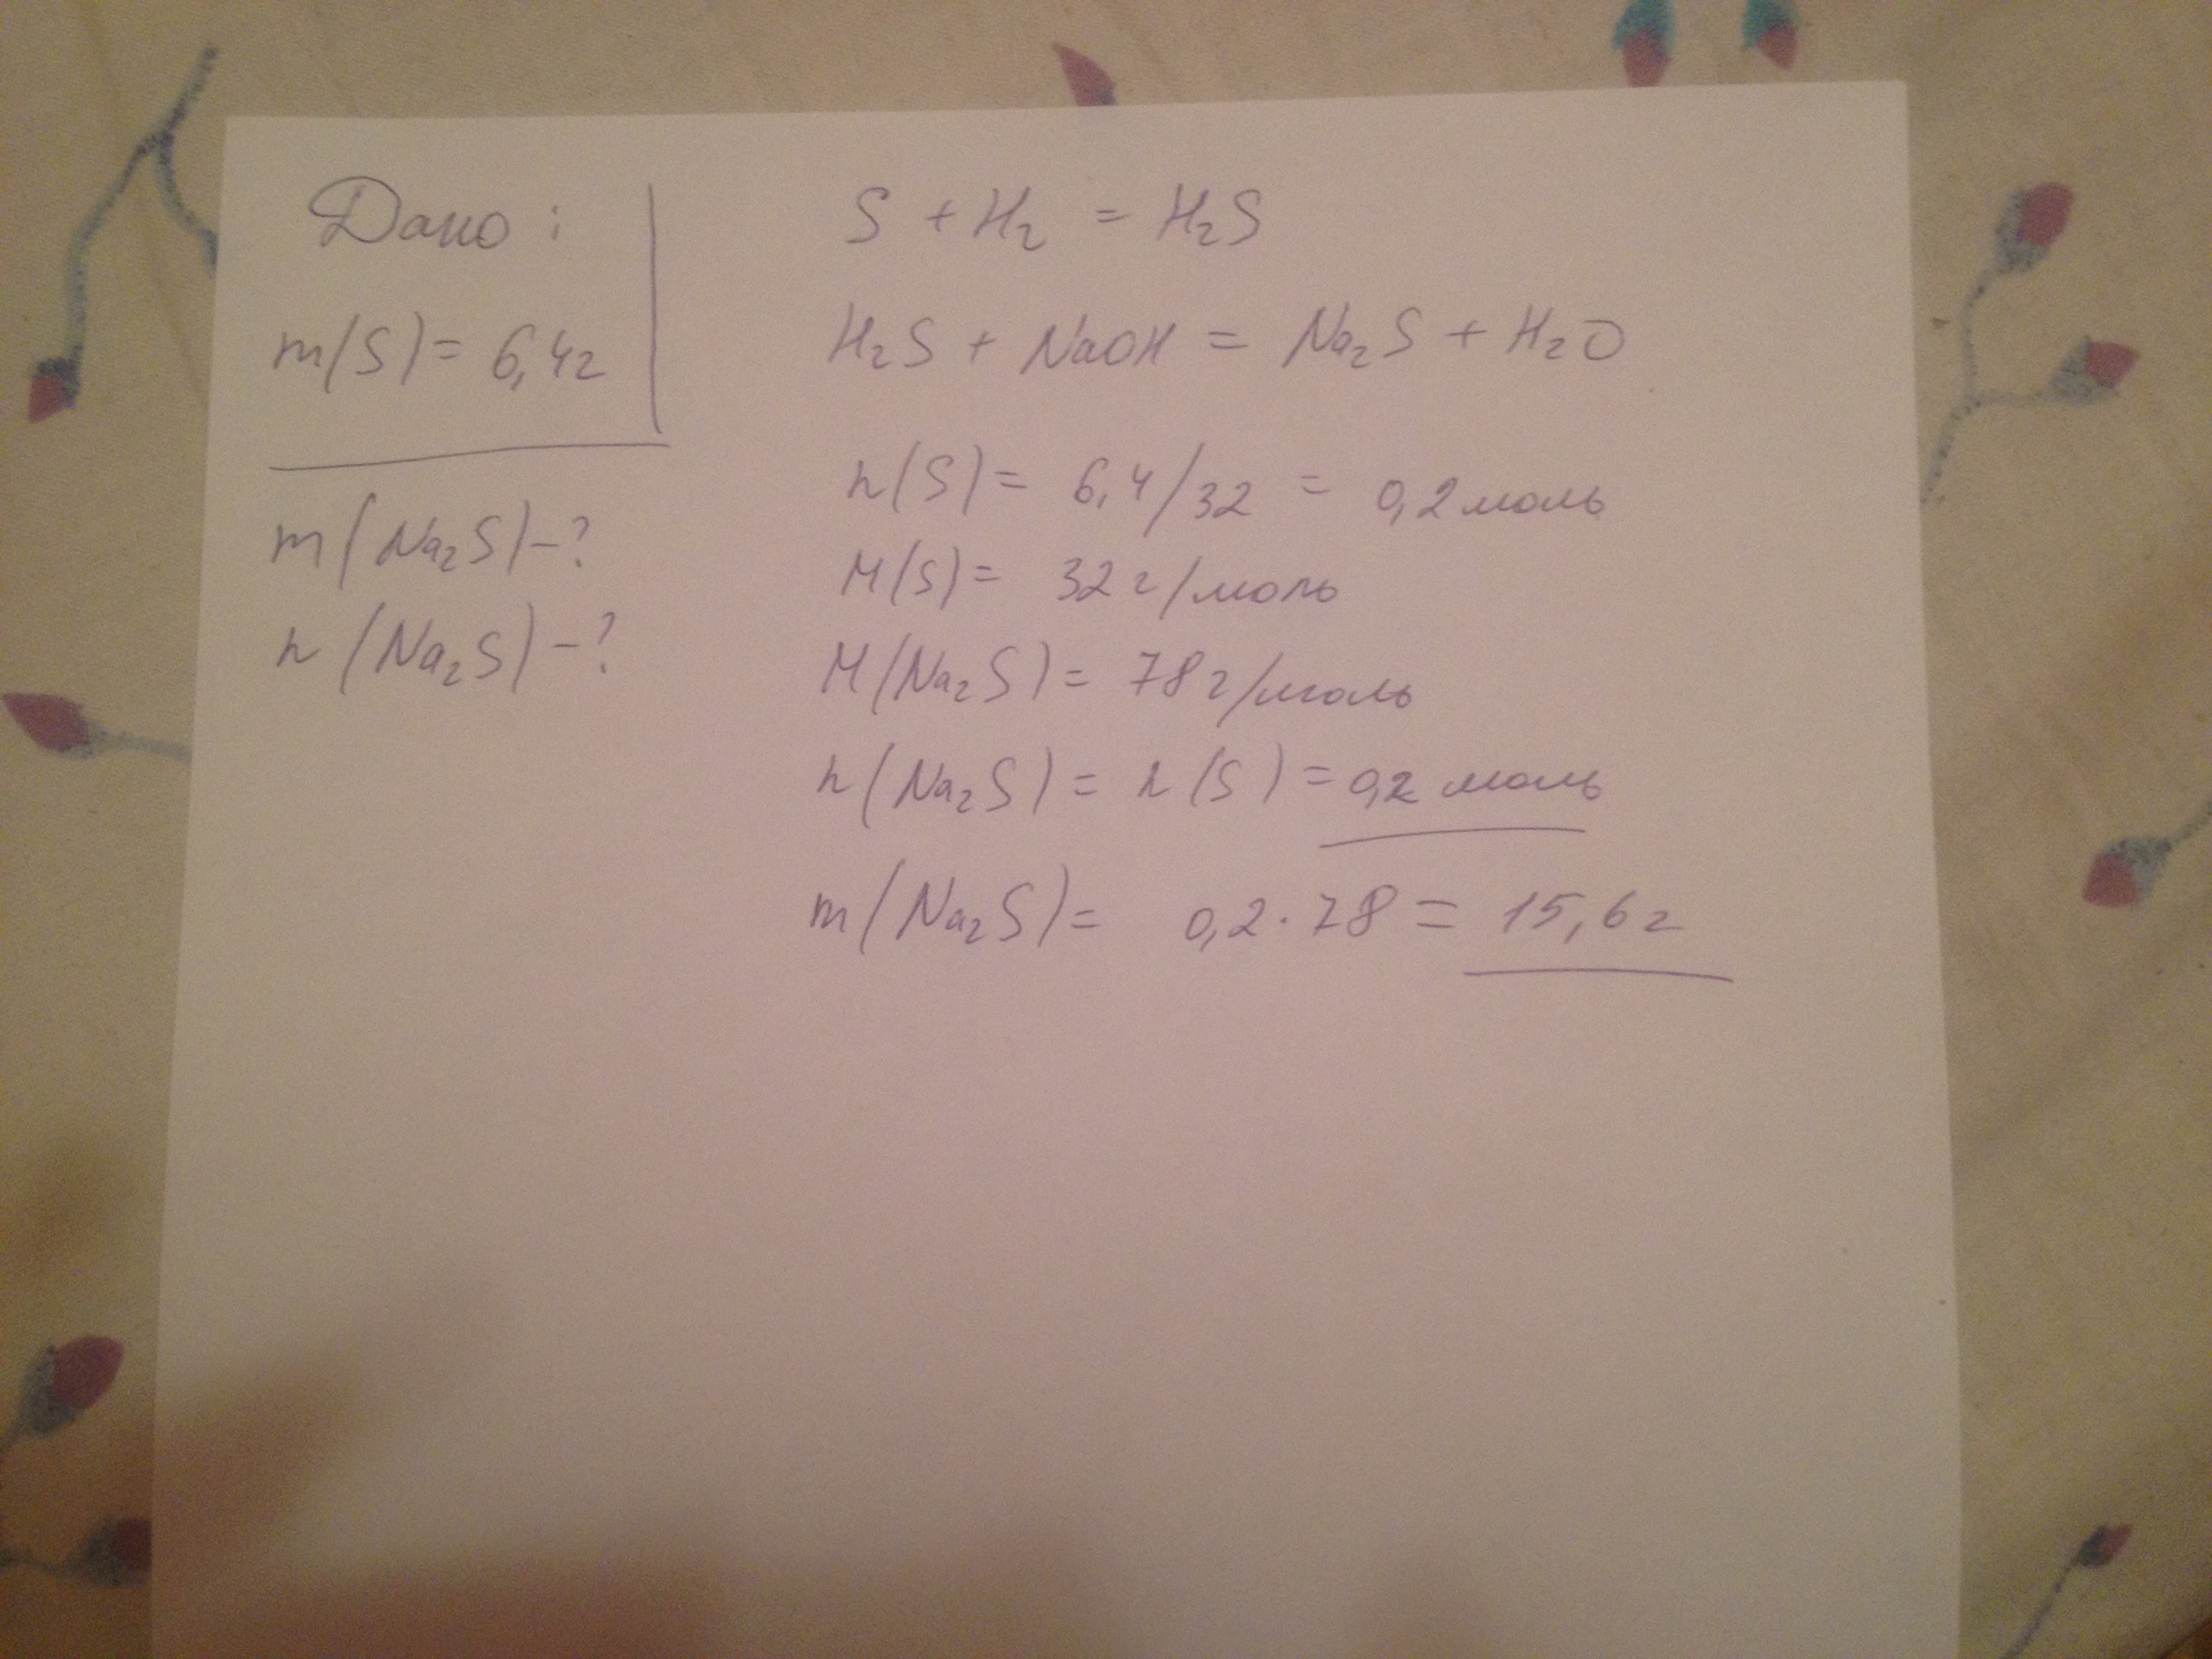 Дано:
m(S) = 6,4г
m(Na₂S) - ?
n(Na₂S) - ?
S + H₂ = H₂S
H₂S + NaOH = Na₂S + H₂O
n(S) = 6,4/32 = 0,2 моль
M(S) = 32 г/моль
M(Na₂S) = 78 г/моль
n(Na₂S) = n(S) = 0,2 моль
m(Na₂S) = 0,2 · 78 = 15,6 г